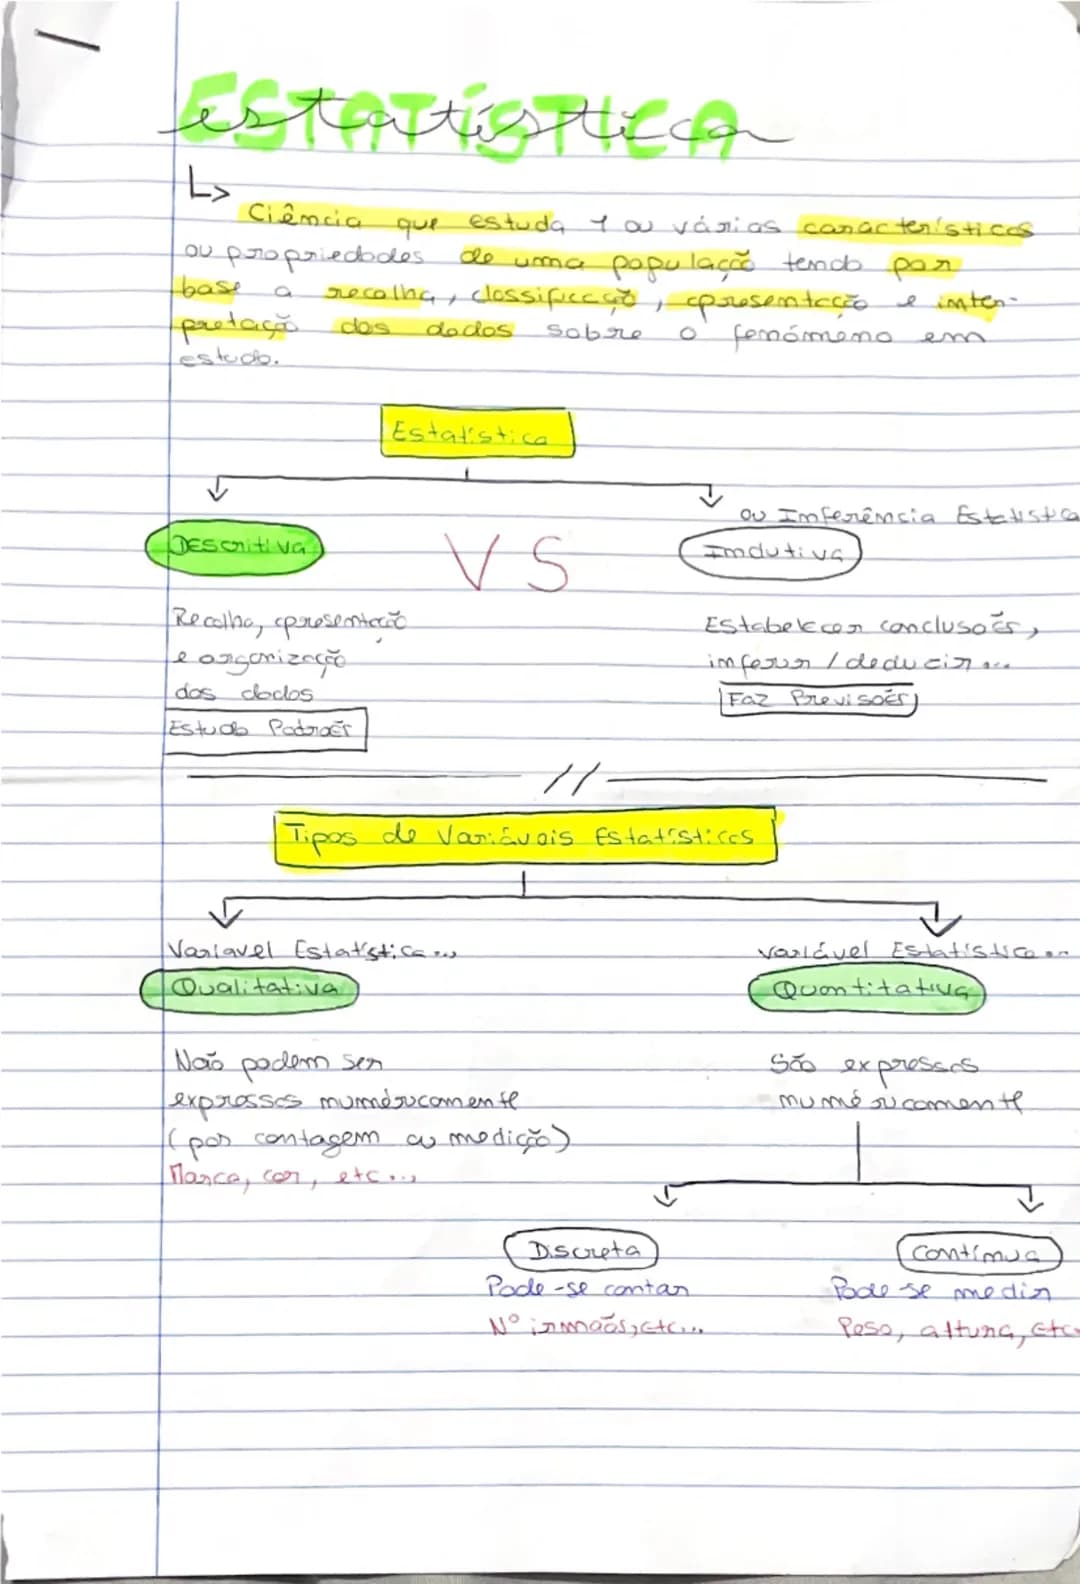 ESTATÍSTICA
estatística
Ciência que estuda 1 ou várias características
ou propriedades de uma população tendo por
base a recolha, classificação, apresentação e inter-
pretação dos dados sobre o fenómeno em
estudo.
Estatística
ou Inferência Estatística
Descritiva VS Indutiva
Recolha, apresentação
e organização
dos dados
Estuda Padrões
Estabelecer conclusões,
inferir / deduzir...
Faz Previsões
//
Tipos de Variáveis Estatísticas
Variavel Estatística...
Qualitativa
Não podem ser
expressas numéricamente
(por contagem ou medição)
Marca, cor, etc...
Variável Estatística...
Quantitativa
São expressas
numéricamente
Discreta
Pode-se contar
Nº irmãos, etc...
Contínua
Pode-se medir
Peso, altura, etc